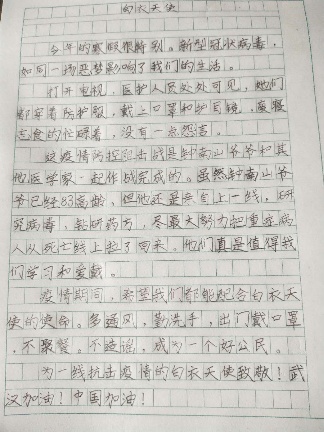 白衣天使
今年的寒假很特别。新型冠状病毒,
如同一场恶梦影响了我们的生活。
打开电视,医护人员处处可见,她们
都穿着防护服,戴上口罩和护目镜,废寝
忘食的忙碌着,没有一点怨言。
这疫情防控阻击战是钟南山爷爷和其
他医学家一起作战完成的。虽然钟南山爷
爷已经83高龄,但他还是亲自上一线,研
究病毒、钻研药方,尽最大努力把重症病
人从死亡线上拉了回来。他们真是值得我
们学习和爱戴。
疫情期间,希望我们都能配合白衣天
使的使命。多通风,勤洗手,出门戴口罩
,不聚餐。不造谣,成为一个好公民。
为一线抗击疫情的白衣天使致敬!武
汉加油!中国加油!